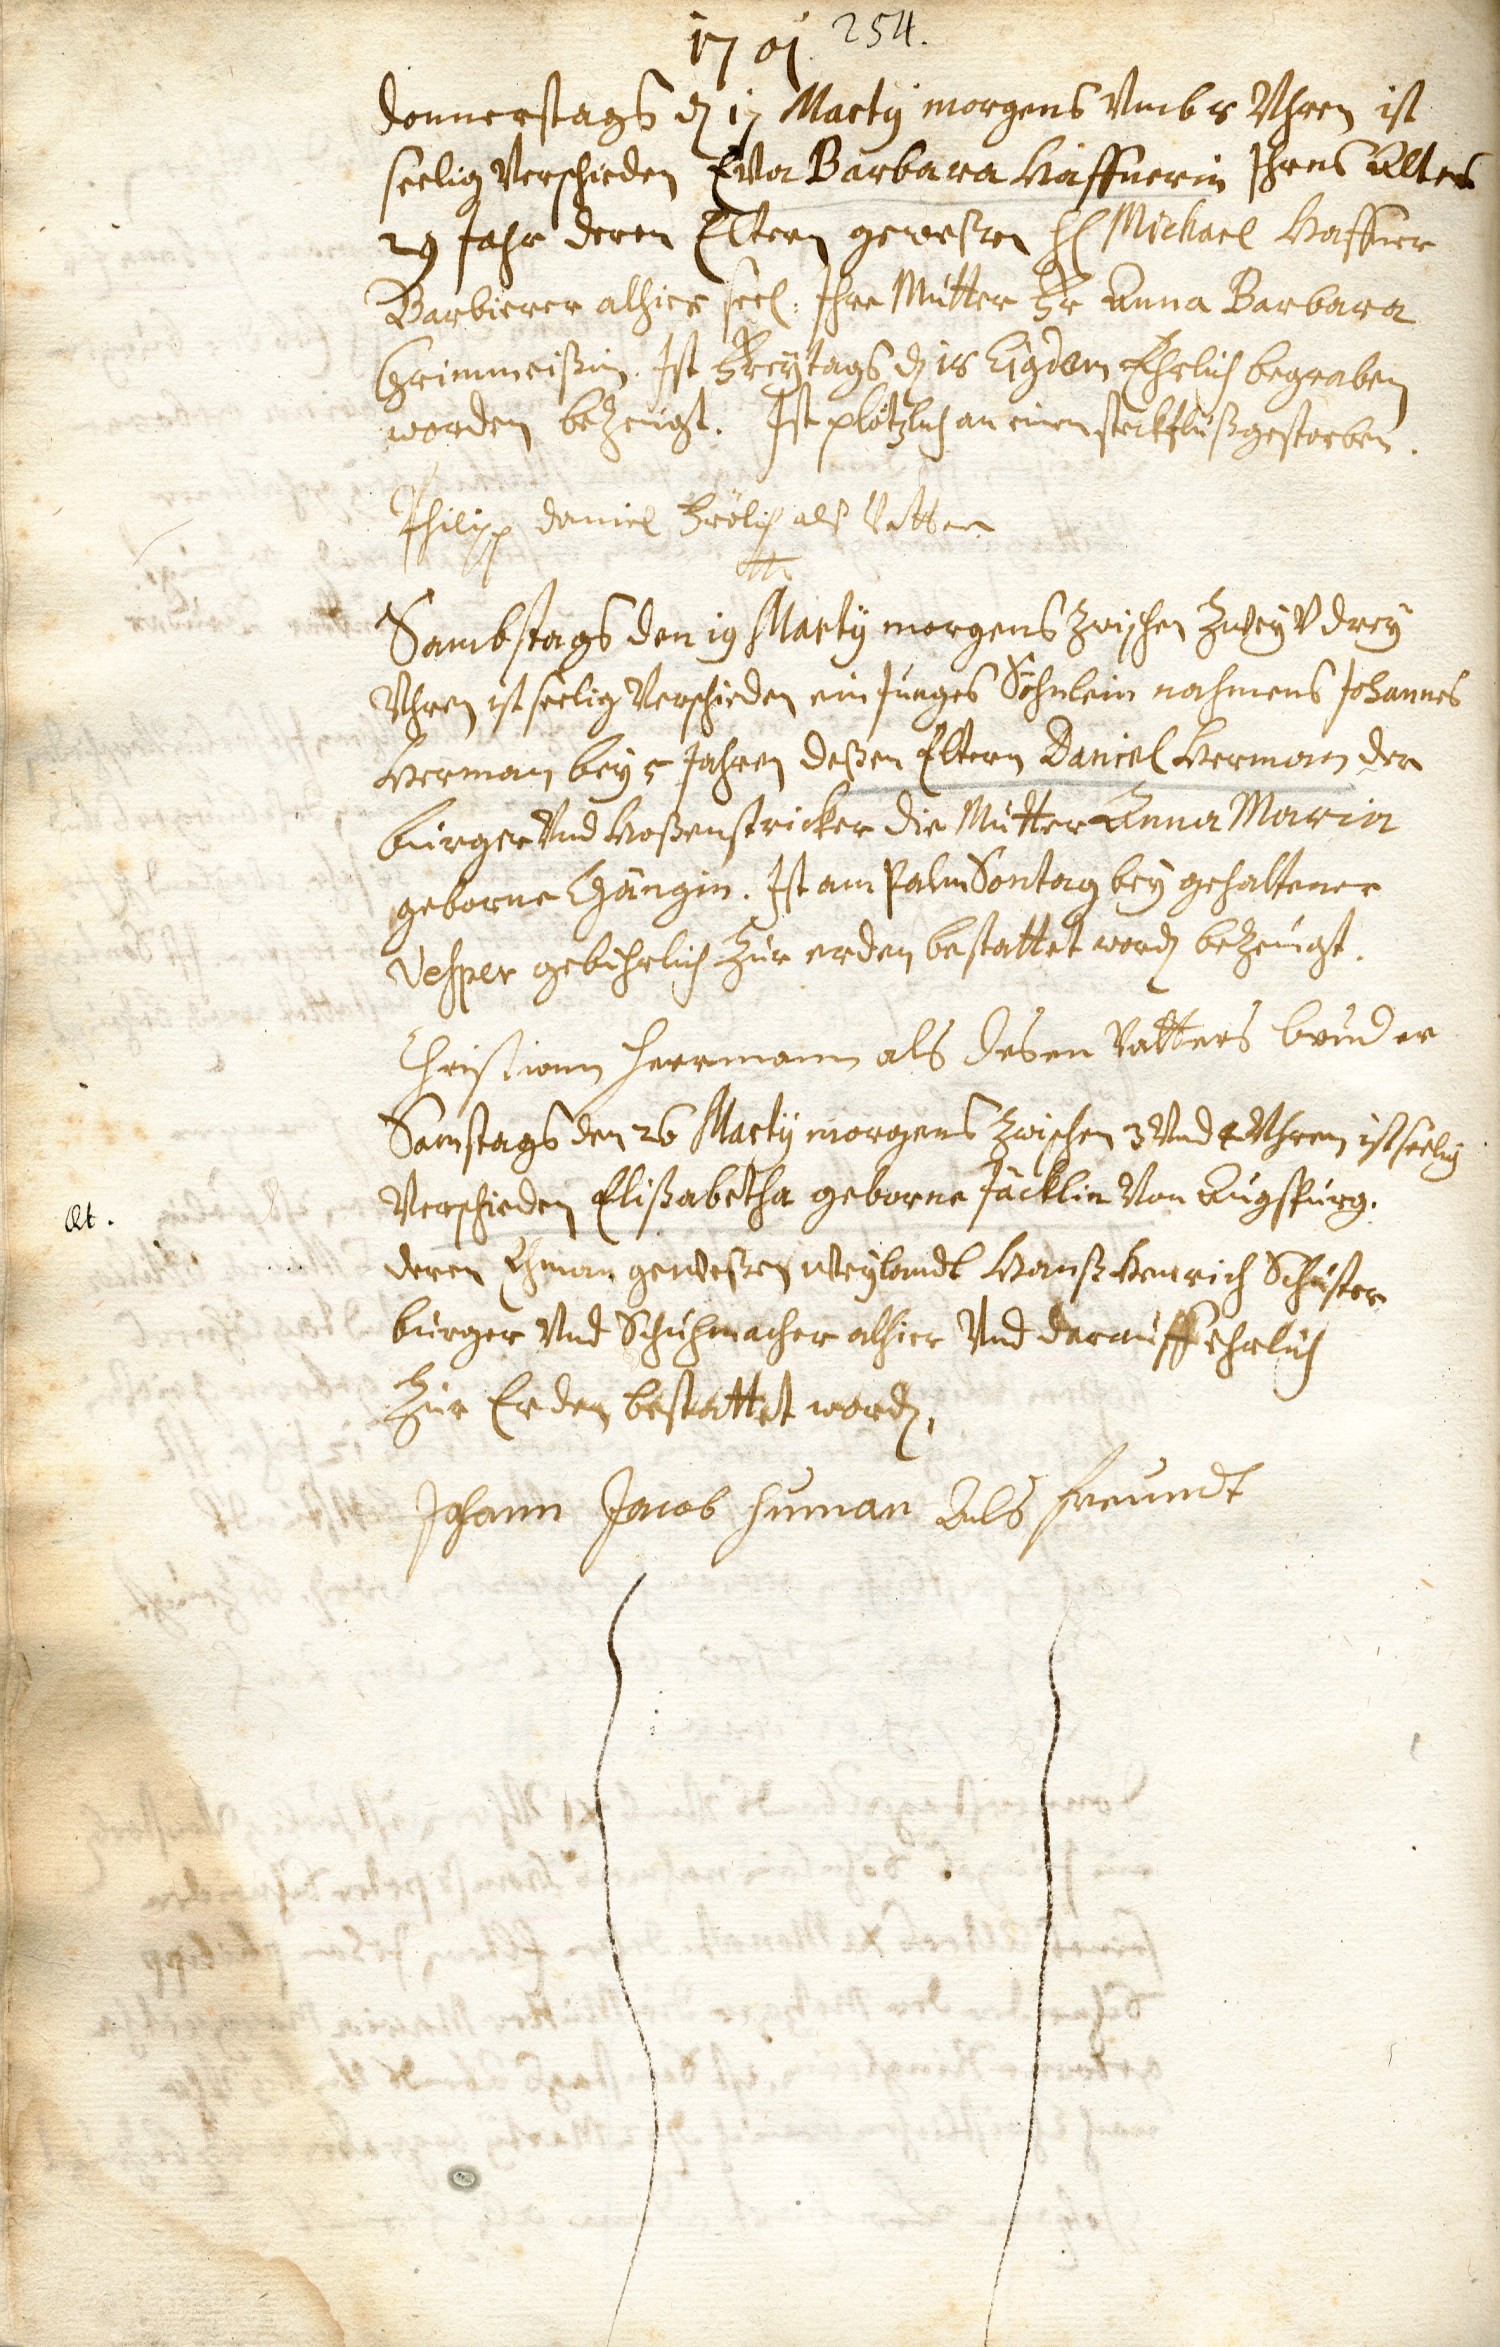 1701. 254.
Donnerstags d 17 Martij morgens Umb 5 Uhren ist
seelig Verschieden Eva Barbara Haffnerin Ihres Alters
29 Jahr deren Eltern geweßen H Michael Haffner
Barbierer alhier seel: Ihre Mutter Fr Anna Barbara
Grimmeißin. Ist Freytags d 18 Ejusdem Ehrlich begraben
worden bezeugt. Ist plötzlich an einen steckfluß gestorben.
Philipp Daniel Frölich als Vetter
Sambstags den 19 Martij morgens zwischen zwey V drey
Uhren ist seelig Verschieden ein Junges Söhnlein nahmens Johannes
Herman bey 5 Jahren deßen Eltern Daniel Herman der
burger Und Hoßenstricker die Mutter Anna Maria
geborne Gängin. Ist am Palm Sontag bey gehaltener
Vesper gebührlich Zur erden bestattet word bezeugt.
Christiann Herrmann als desen Vatters bruder
Samstags den 26 Martij morgens zwischen 3 Und 4 Uhren ist seelig
Verschieden Elißabetha geborne Jäcklin Von Augspurg.
æt.
deren Ehman geweßen weylandt Hanß Henrich Schuster
burger Und Schuhmacher alhier Und darauff Ehrlich
Zur Erden bestattet word,
Johann Jacob Human Als freundt